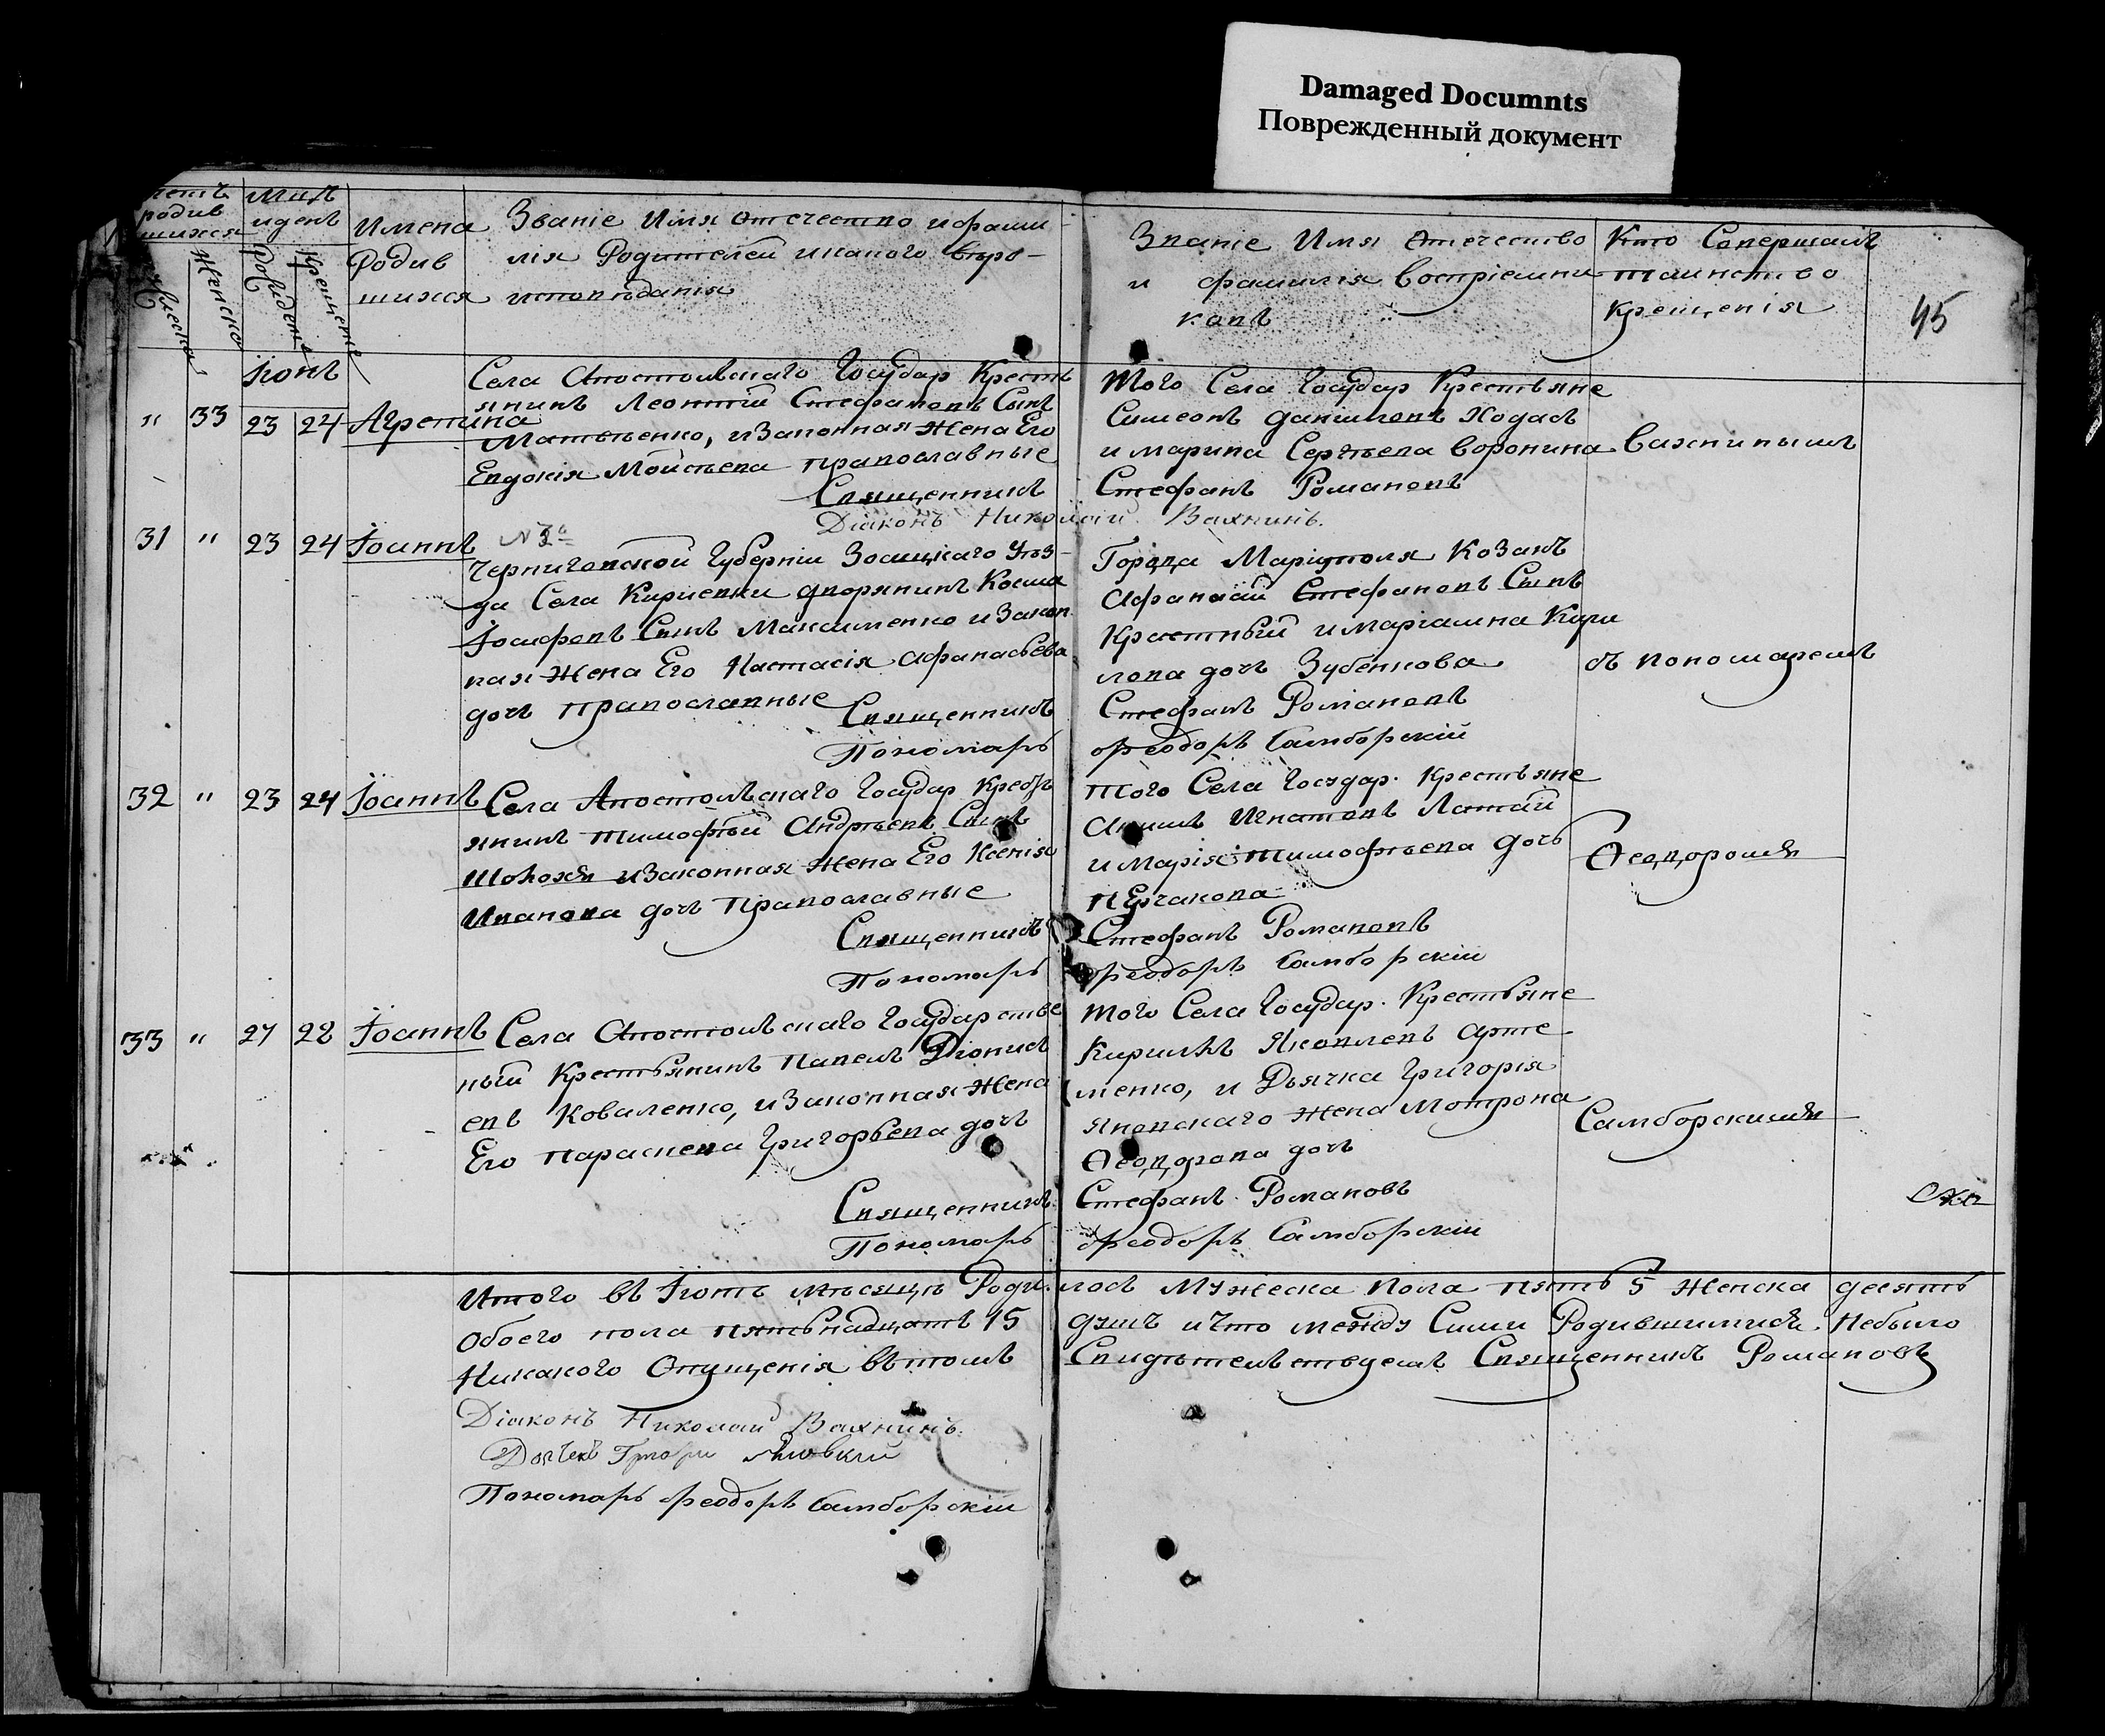 Damaged Documnts
Поврежденный документ
четъ родившихся
Мц̃ъ и день
Имена Родившихся
Званіе Имя отечество и фамилія Родителей и какого вѣроисповѣданія
Званіе Имя Отечество и фамилія Воспріемниковъ
Кто Совершалъ таинство крещенія
45
Мужеска
Женско
Рожденіе
Крещеніе
Іюнь
" 33 23 24 Агрепина
Села Апостольскаго Государ Кресть
янинъ Леонтій Стефановъ Сынъ
Матвѣенко, и Законная Жена Его
Евдокія Мойсѣева православные
Священникъ
Діаконъ Николай Вахнинъ.
Того Села Государ Крестьяне
Симеонъ Даниловъ Ходасъ
и Марина Сергѣева Воронина
Стефанъ Романовъ
Вахнинымъ
31 " 23 24 Іоаннъ
Черниговской Губерніи
да Села Кириевки дворянинъ Косма
Іосифовъ Сынъ Максименко и Закон
ная Жена Его Настасія Афанасьева
дочь православные
Священникъ
Пономарь
Города Маріуполя Козакъ
Афанасій Стефановъ Сынъ
и Маріамна Кири
лова дочь Зубенкова
Стефанъ Романовъ
Феодоръ Самборскій
съ пономаремъ
32 " 23 24 Іоаннъ
Села Апостольскаго Государ Крест
янинъ Тимофѣй Андрѣевъ Сынъ
и Законная Жена Его Ксенія
Иванова дочь Православные
Священникъ
Пономарь
того Села Государ. Крестьяне
Игнатовъ Латай
и Марія Тимофѣева дочь
Стефанъ Романовъ
Феодоръ Самборскій
Ѳеодоромъ
33 " 27 28 Іоаннъ
Села Апостольскаго Государстве
ный Крестьянинъ Павелъ Діонисі
евъ Коваленко, и Законная Жена
Его Параскева Григорьева дочь
Священникъ
Пономарь
того Села Государ. Крестьяне
Кирилъ Яковлевъ Арте
менко, и Дьячка Григорія
Яновскаго Жена Мотрона
Ѳеодорова дочь
Стефанъ Романовъ
Феодоръ Самборскій
Самборскимъ
Итого въ Іюнѣ мѣсяцѣ Родилось Мужеска пола пять 5 Женска десять
Обоего пола пятьнадцать 15 душъ и Что между Сими Родившимися Небыло
Никакого Опущенія въ томъ Свидѣтельствуемъ Священникъ Романовъ
Діаконъ Николай Вахнинъ.
Пономарь Феодоръ Самборскій